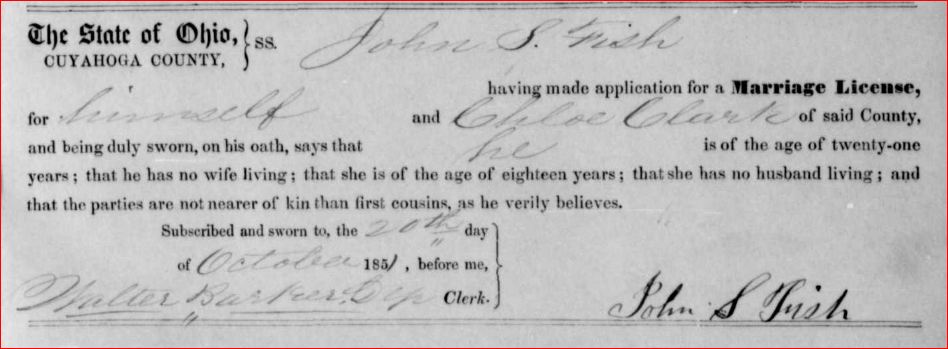 The State of Ohio, } ss. John S. Fish
CUYAHOGA COUNTY,
having made application for a Marriage License,
for himself and Chloe Clark of said County,
and being duly sworn, on his oath, says that he is of the age of twenty-one
years; that he has no wife living; that she is of the age of eighteen years; that she has no husband living; and
that the parties are not nearer of kin than first cousins, as he verily believes.
Subscribed and sworn to, the 20th day
of October 1851, before me,
Walter Barker, Dep Clerk.
John S Fish